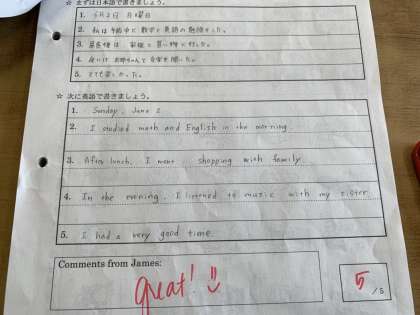 ☆ まずは日本語で書きましょう。
1. 6月2日 日曜日
2. 私は午前中に数学と英語の勉強をした。
3. 昼食後は 家族と 買い物に行った。
4. 夜は お姉ちゃんと 音楽を聞いた。
5. とても楽しかった。
☆ 次に英語で書きましょう。
1. Sunday, June 2
2. I studied math and English in the morning.
3. After lunch, I went shopping with family.
4. In the evening, I listened to music with my sister.
5. I had a very good time.
Comments from James:
great!
5 /5